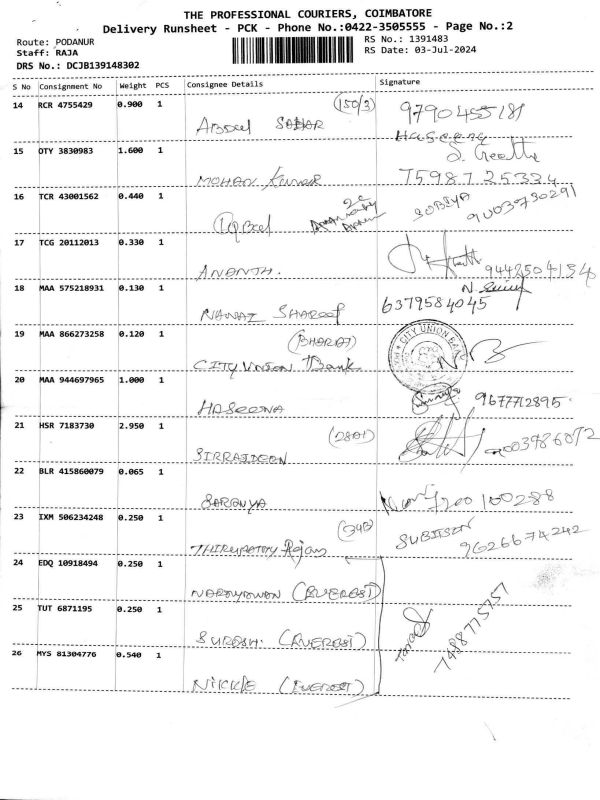 THE PROFESSIONAL COURIERS, COIMBATORE
Delivery Runsheet - PCK - Phone No.:0422-3505555 - Page No.:2
Route: PODANUR
Staff: RAJA
DRS No.: DCJB139148302
RS No.: 1391483
RS Date: 03-Jul-2024
S No Consignment No Weight PCS Consignee Details Signature
14 RCR 4755429 0.900 1 (150/3) 9790455181
Haseena
15 OTY 3830983 1.600 1
MOHAN Kumar 7598725334
16 TCR 43001562 0.440 1 SOBIYA 9003730291
17 TCG 20112013 0.330 1
ANANTH. 9442504134
18 MAA 575218931 0.130 1 6379584045
NAWAZ SHAREEF
19 MAA 866273258 0.120 1 (BHARAT) CITY UNION BANK
CITY UNION Bank
20 MAA 944697965 1.000 1 9677712895
HASEENA
21 HSR 7183730 2.950 1 (2801) 9003986072
SIRRAJDEEN
22 BLR 415860079 0.065 1
SARANYA 7200100288
23 IXM 506234248 0.250 1 (34B) 9626674242
THIRUPATHY Rajan
24 EDQ 10918494 0.250 1
NARAYANAN (EVEREST)
25 TUT 6871195 0.250 1
SURESH. (EVEREST) 7488775757
26 MYS 81304776 0.540 1
NIKKLE (EVEREST)